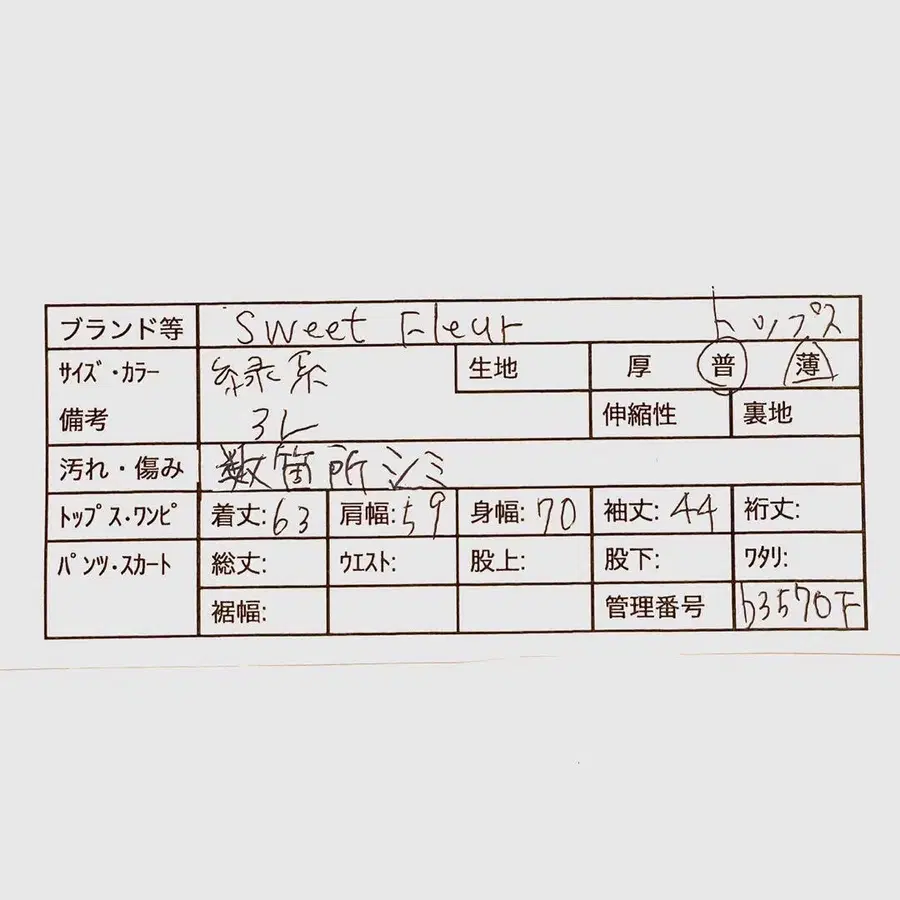 ブランド等 Sweet Fleur トップス
サイズ・カラー 緑系 生地 厚 普 薄
備考 3L 伸縮性 裏地
汚れ・傷み 数箇所シミ
トップス・ワンピ 着丈:63 肩幅:59 身幅:70 袖丈:44 裄丈:
パンツ・スカート 総丈: ウエスト: 股上: 股下: ワタリ:
裾幅: 管理番号 b3570F